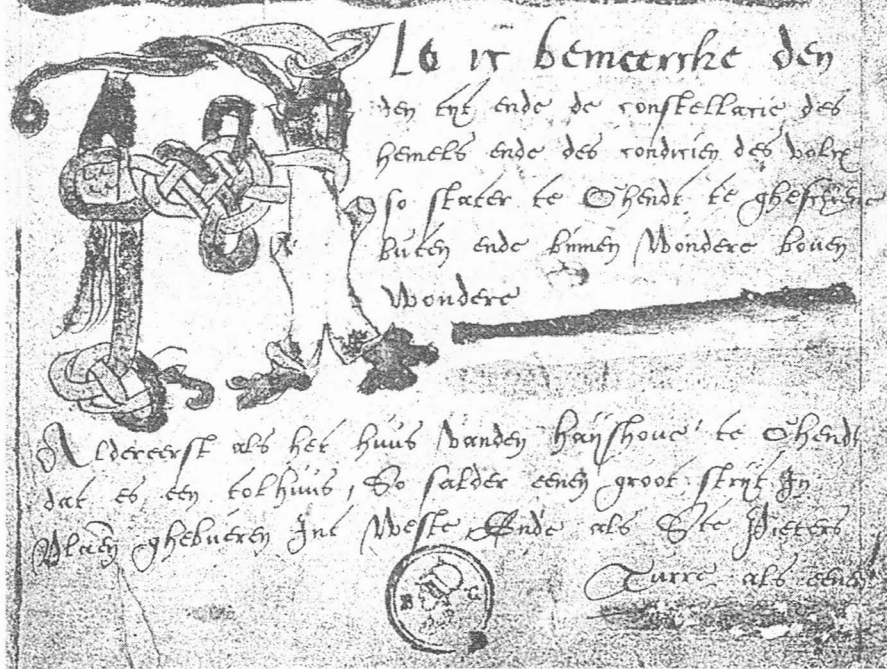 Alo ic bemercke den
den tyt ende de constellacie des
hemels ende des condicien des volcx
so stater te Ghendt te gheschiene
buten ende binnen Wondere boven
Wondere
Aldereerst als het huus vanden hayshove te Ghendt
dat es een tolhuus, So salder eenen groot stryt In
Vlaen ghebueren Int Weste Ende als Ste Pieters
Turre als eenen